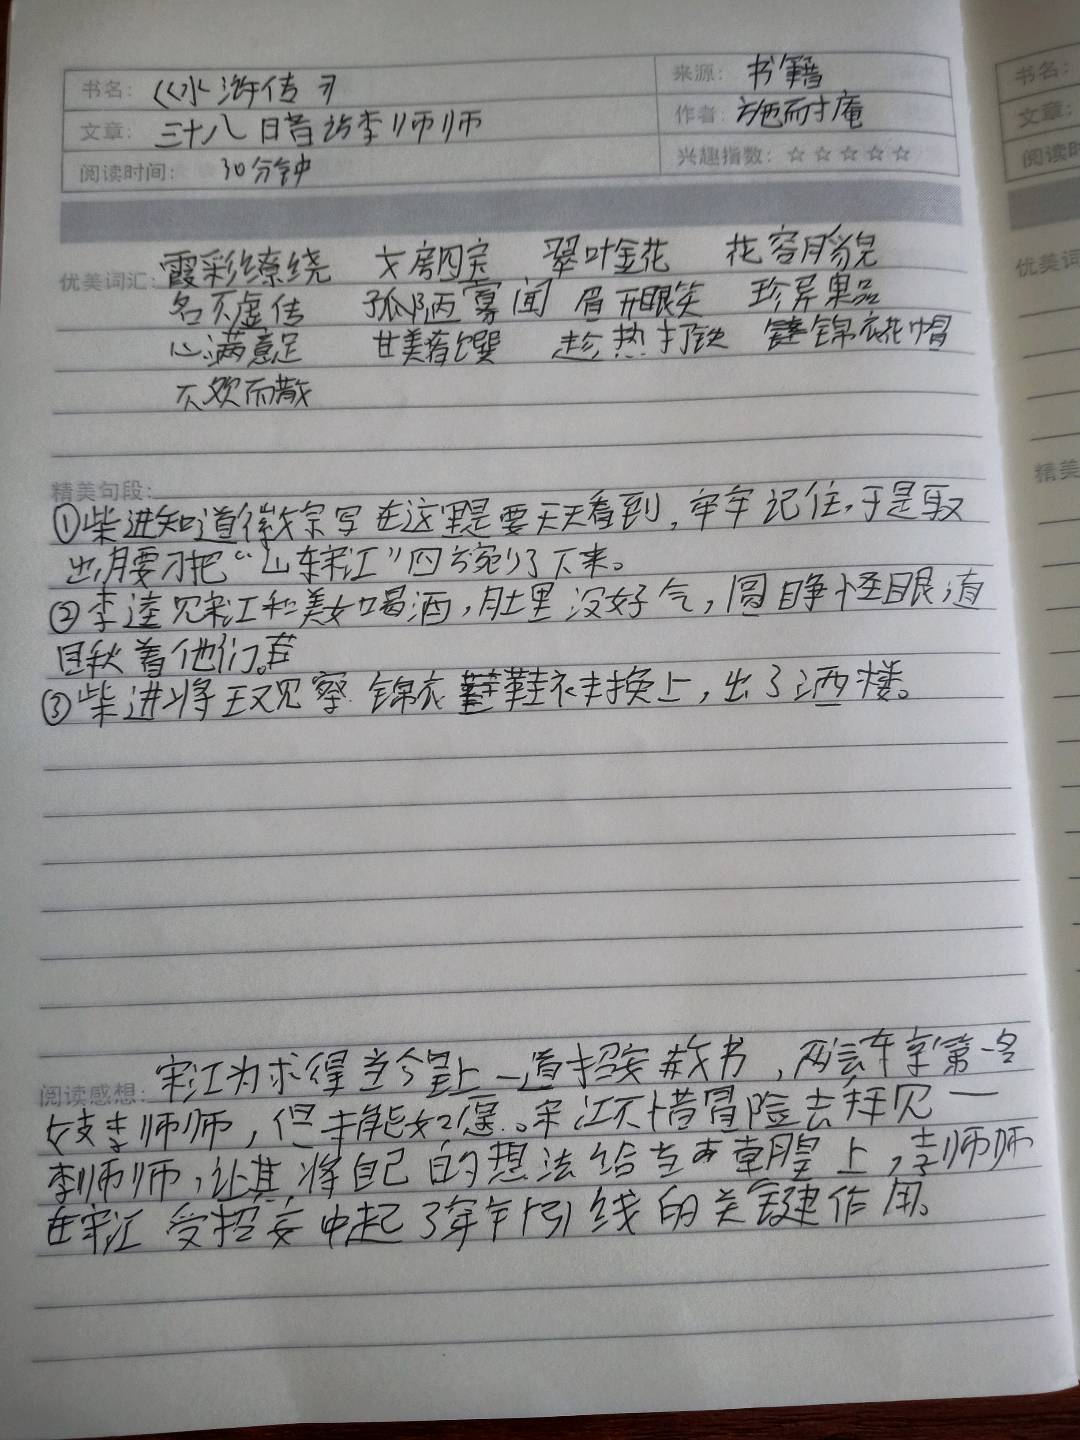 书名：《水浒传》
来源：书籍
文章：三十八 暗访李师师
作者：施耐庵
阅读时间：30分钟
兴趣指数：☆☆☆☆☆
优美词汇：霞彩缭绕 文房四宝 翠叶金花 花容月貌
名不虚传 孤陋寡闻 眉开眼笑 珍异果品
心满意足 甘美肴馔 趁热打铁 锦衣花帽
不欢而散
精美句段：
①柴进知道徽宗写在这里是要天天看到，牢牢记住，于是取
出腰刀把“山东宋江”四字剜了下来。
②李逵见宋江和美女喝酒，肚里没好气，圆睁怪眼，直
瞅着他们。
③柴进将王观察锦衣鞋裤换上，出了酒楼。
阅读感想：宋江为求得当今皇上一道招安赦书，两会东京第一名
妓李师师，但未能如愿。宋江不惜冒险去拜见
李师师，让其将自己的想法给当朝皇上，李师师
在宋江受招安中起了穿针引线的关键作用。
书名：
文章：
阅读时
优美词
精美